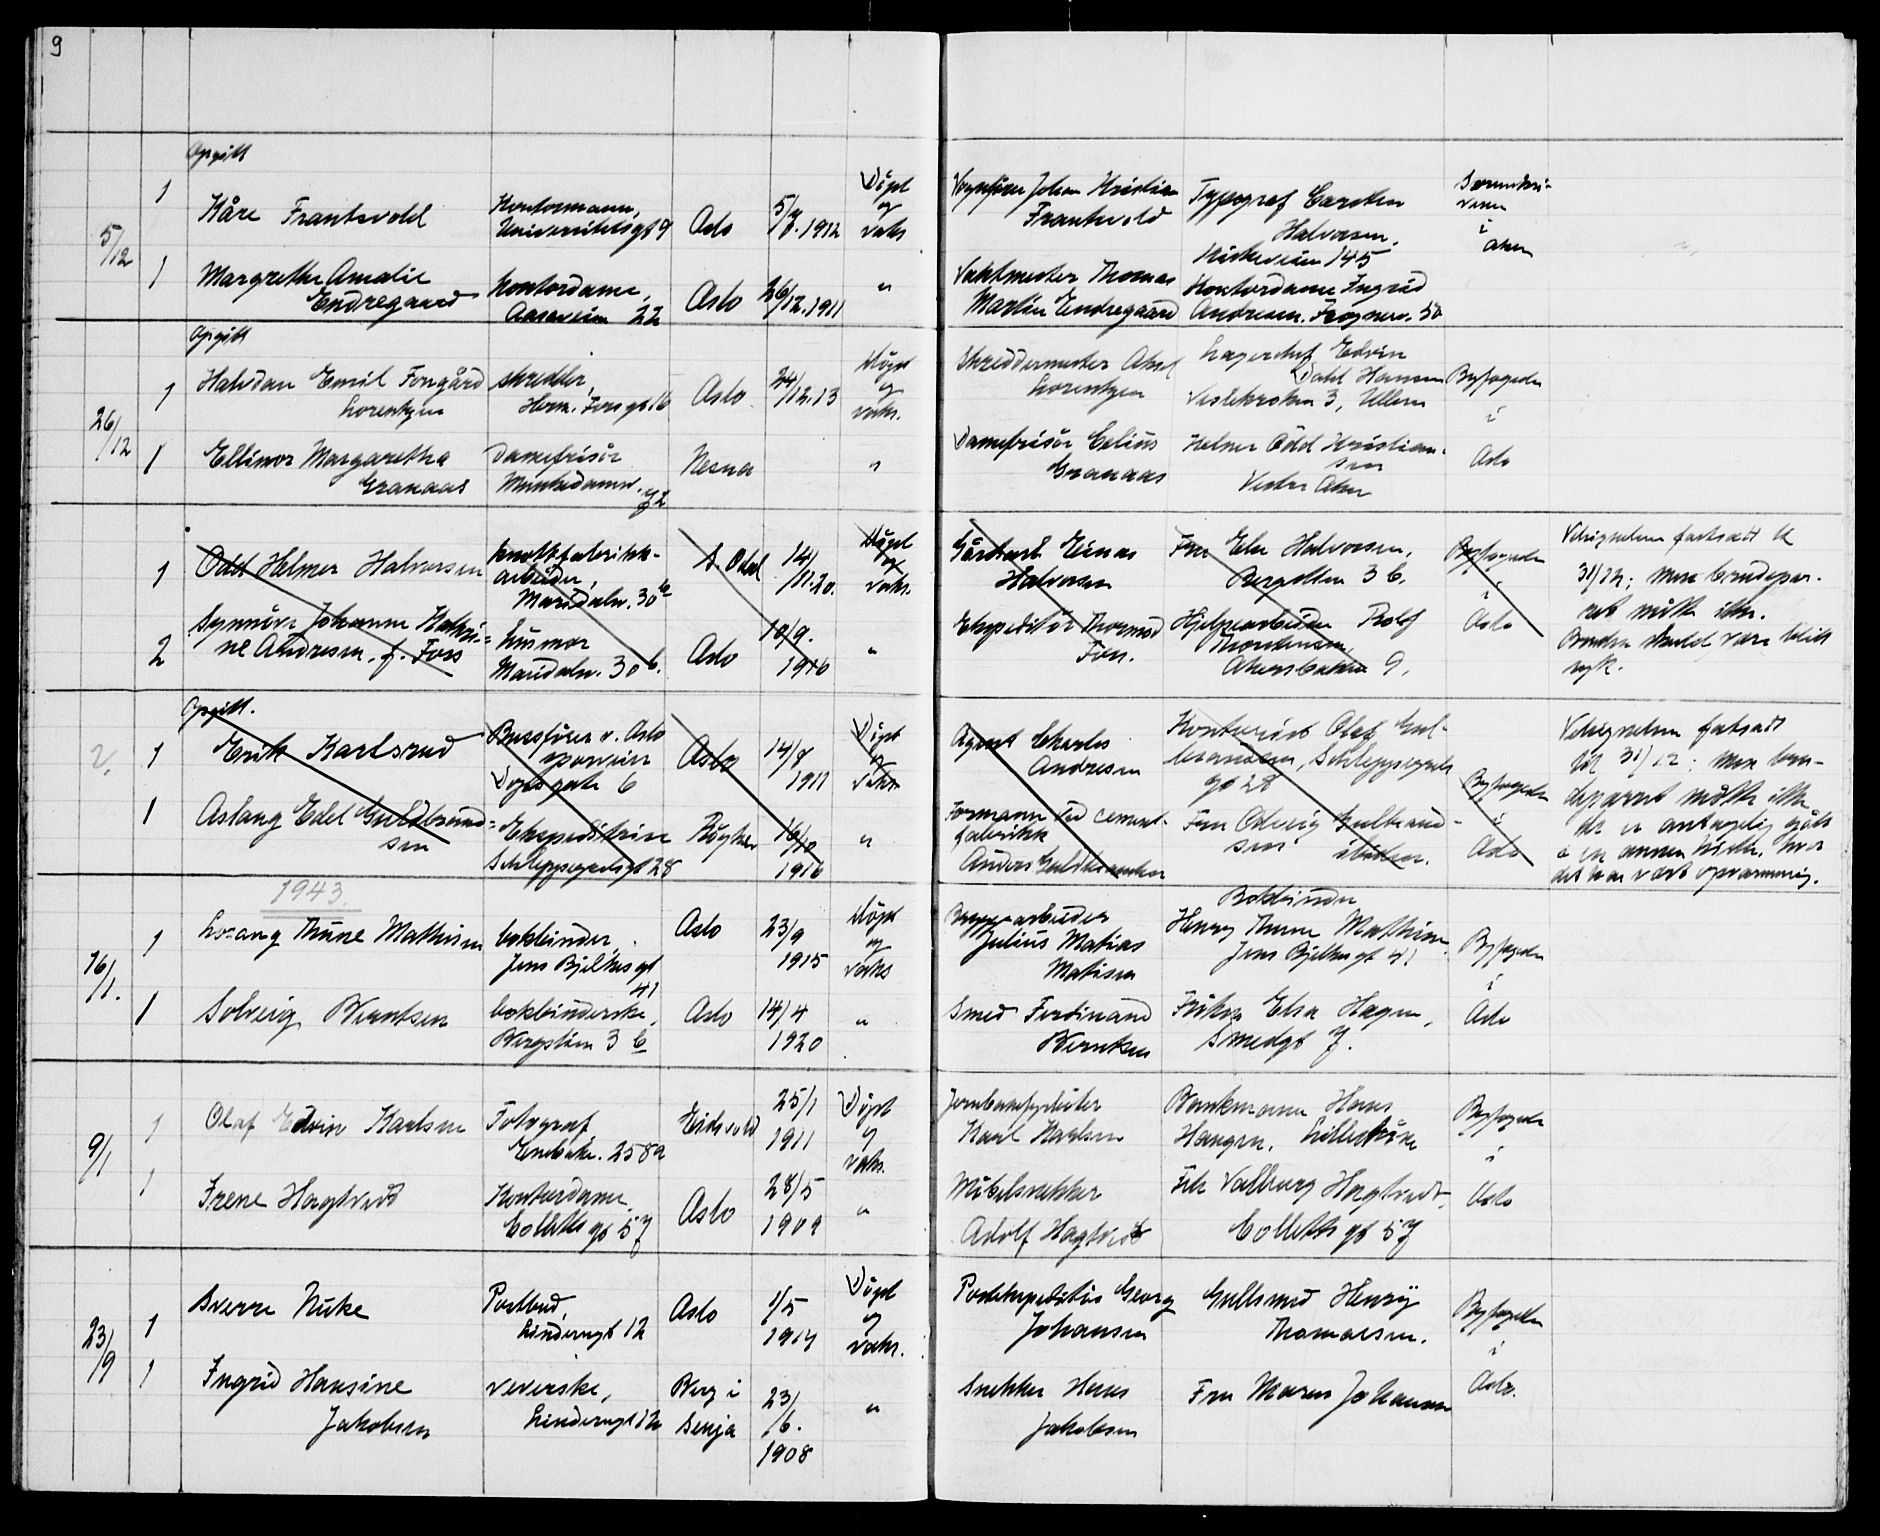 9
Opgitt
5/12
1
Kåre Frantsvold
Kontormann,
Universitetsgt 9
Oslo
5/8. 1912
Døpt
og
vaks
Vognfører Johan Kristian
Frantsvold
Typograf Carsten
Halvorsen,
Kirkeveien 145
Sorenskri-
veren
i
Aker
1
Margrethe Amalie
Endregaard
Kontordame,
Aasaveien 22
Oslo
26/12.1911
"
Vaktmester Thomas
Martin Endregaard
Kontordame Ingrid
Andresen. Frognerv. 50
Opgitt
26/12
1
Halvdan Emil Fongård
Lorentzen
skredder,
Herm. Foss gt 16
Oslo
24/12.13
Døpt
og
vaks.
Skreddermester Aksel
Lorentzen
Lagersjef Edvin
Dahl Hansen
Vestekroken 3, Ullern
Byfogeden
i
Oslo
1
Ellinor Margaretha
Granaas
Damefrisør
Munkedamsv. 72
Nesna
"
Damefrisør Celius
Granaas
Helmer Odd Kristian-
sen
Vestre Aker
1
Odd Helmer Halvorsen
knottfabrikk-
arbeider,
Maridalsv. 30 b
S. Odal
14/11.20.
Døpt
og
vaks.
Gårdsarb. Einar
Halvorsen
Fru Else Halvorsen,
Bergstien 3 b.
Byfogeden
i
Oslo
Velsignelsen fastsatt til
31/12; men brudepar-
ret møtte ikke.
Bruden skulde være blitt
syk.
2
Synnøve Johanne Kathri-
ne Andresen, f. Foss
husmor
Maridalsv. 30 b.
Oslo
10/9.
1916
"
Ekspeditør Thormod
Foss.
Hjelpearbeider Rolf
Thorkildsen,
Akersbakken 9.
Opgitt.
2.
1
Erik Karlsrud
Bussfører v. Oslo
sporveier
Dops gate 6
Oslo
14/8
1911
Døpt
og
vaks
Agent Charles
Andresen
Kontorist Olaf Gul-
brandsen, Schleppegrels
gt 28
Byfogeden
i
Oslo
Velsignelsen fastsatt
til 31/12; men bru-
deparret møtte ikke.
De er antagelig gått
i en annen kirke, hvor
det har vært opvarmning.
1
Aslaug Edel Guldbrand-
sen
Ekspeditrise
Schleppegrelsgt 28
Røyken
16/10
1916
"
Formann ved cement-
fabrikk
Anders Guldbrandsen
Fru Solveig Gulbrand-
sen
ibidem.
1943
16/1.
1
Lorang Thune Mathisen
bokbinder,
Jens Bjelkes gt
41
Oslo
23/9
1915
Døpt
og
vaks
Bryggearbeider
Julius Matias
Matisen
Bokbinder
Henry Thune Mathisen
Jens Bjelkes gt 41
Byfogeden
i
Oslo
1
Solveig Werntsen
bokbinderske,
Bergstien 3 b
Oslo
14/4
1920
"
Smed Ferdinand
Werntsen
Frøken Elsa Hagen,
Smedgt 7.
9/1
1
Olaf Edvin Karlsen
Fotograf
Enebakv. 258a
Eidsvold
25/1
1911
Døpt
og
vaks.
Jernbanearbeider
Karl Karlsen
Bankmann Hans
Haugen, Lillestrøm
Byfogeden
i
Oslo
1
Irene Hagtvedt
Kontordame
Colletts gt 57
Oslo
28/5
1909
"
Møbelsnekker
Adolf Hagtvedt
Frk Valborg Hagtvedt
Colletts gt 57
23/9
1
Sverre Nuke
Postbud,
Linderngt 12
Oslo
1/5
1917
Døpt
og
vaks.
Postekspeditør Georg
Johansen
Gullsmed Henry
Thomassen.
Byfogeden
i
Oslo.
1
Ingrid Hansine
Jakobsen
veverske,
Linderngt 12
Berg i
Senja
23/6.
1908
"
Snekker Hans
Jakobsen
Fru Maren Johansen